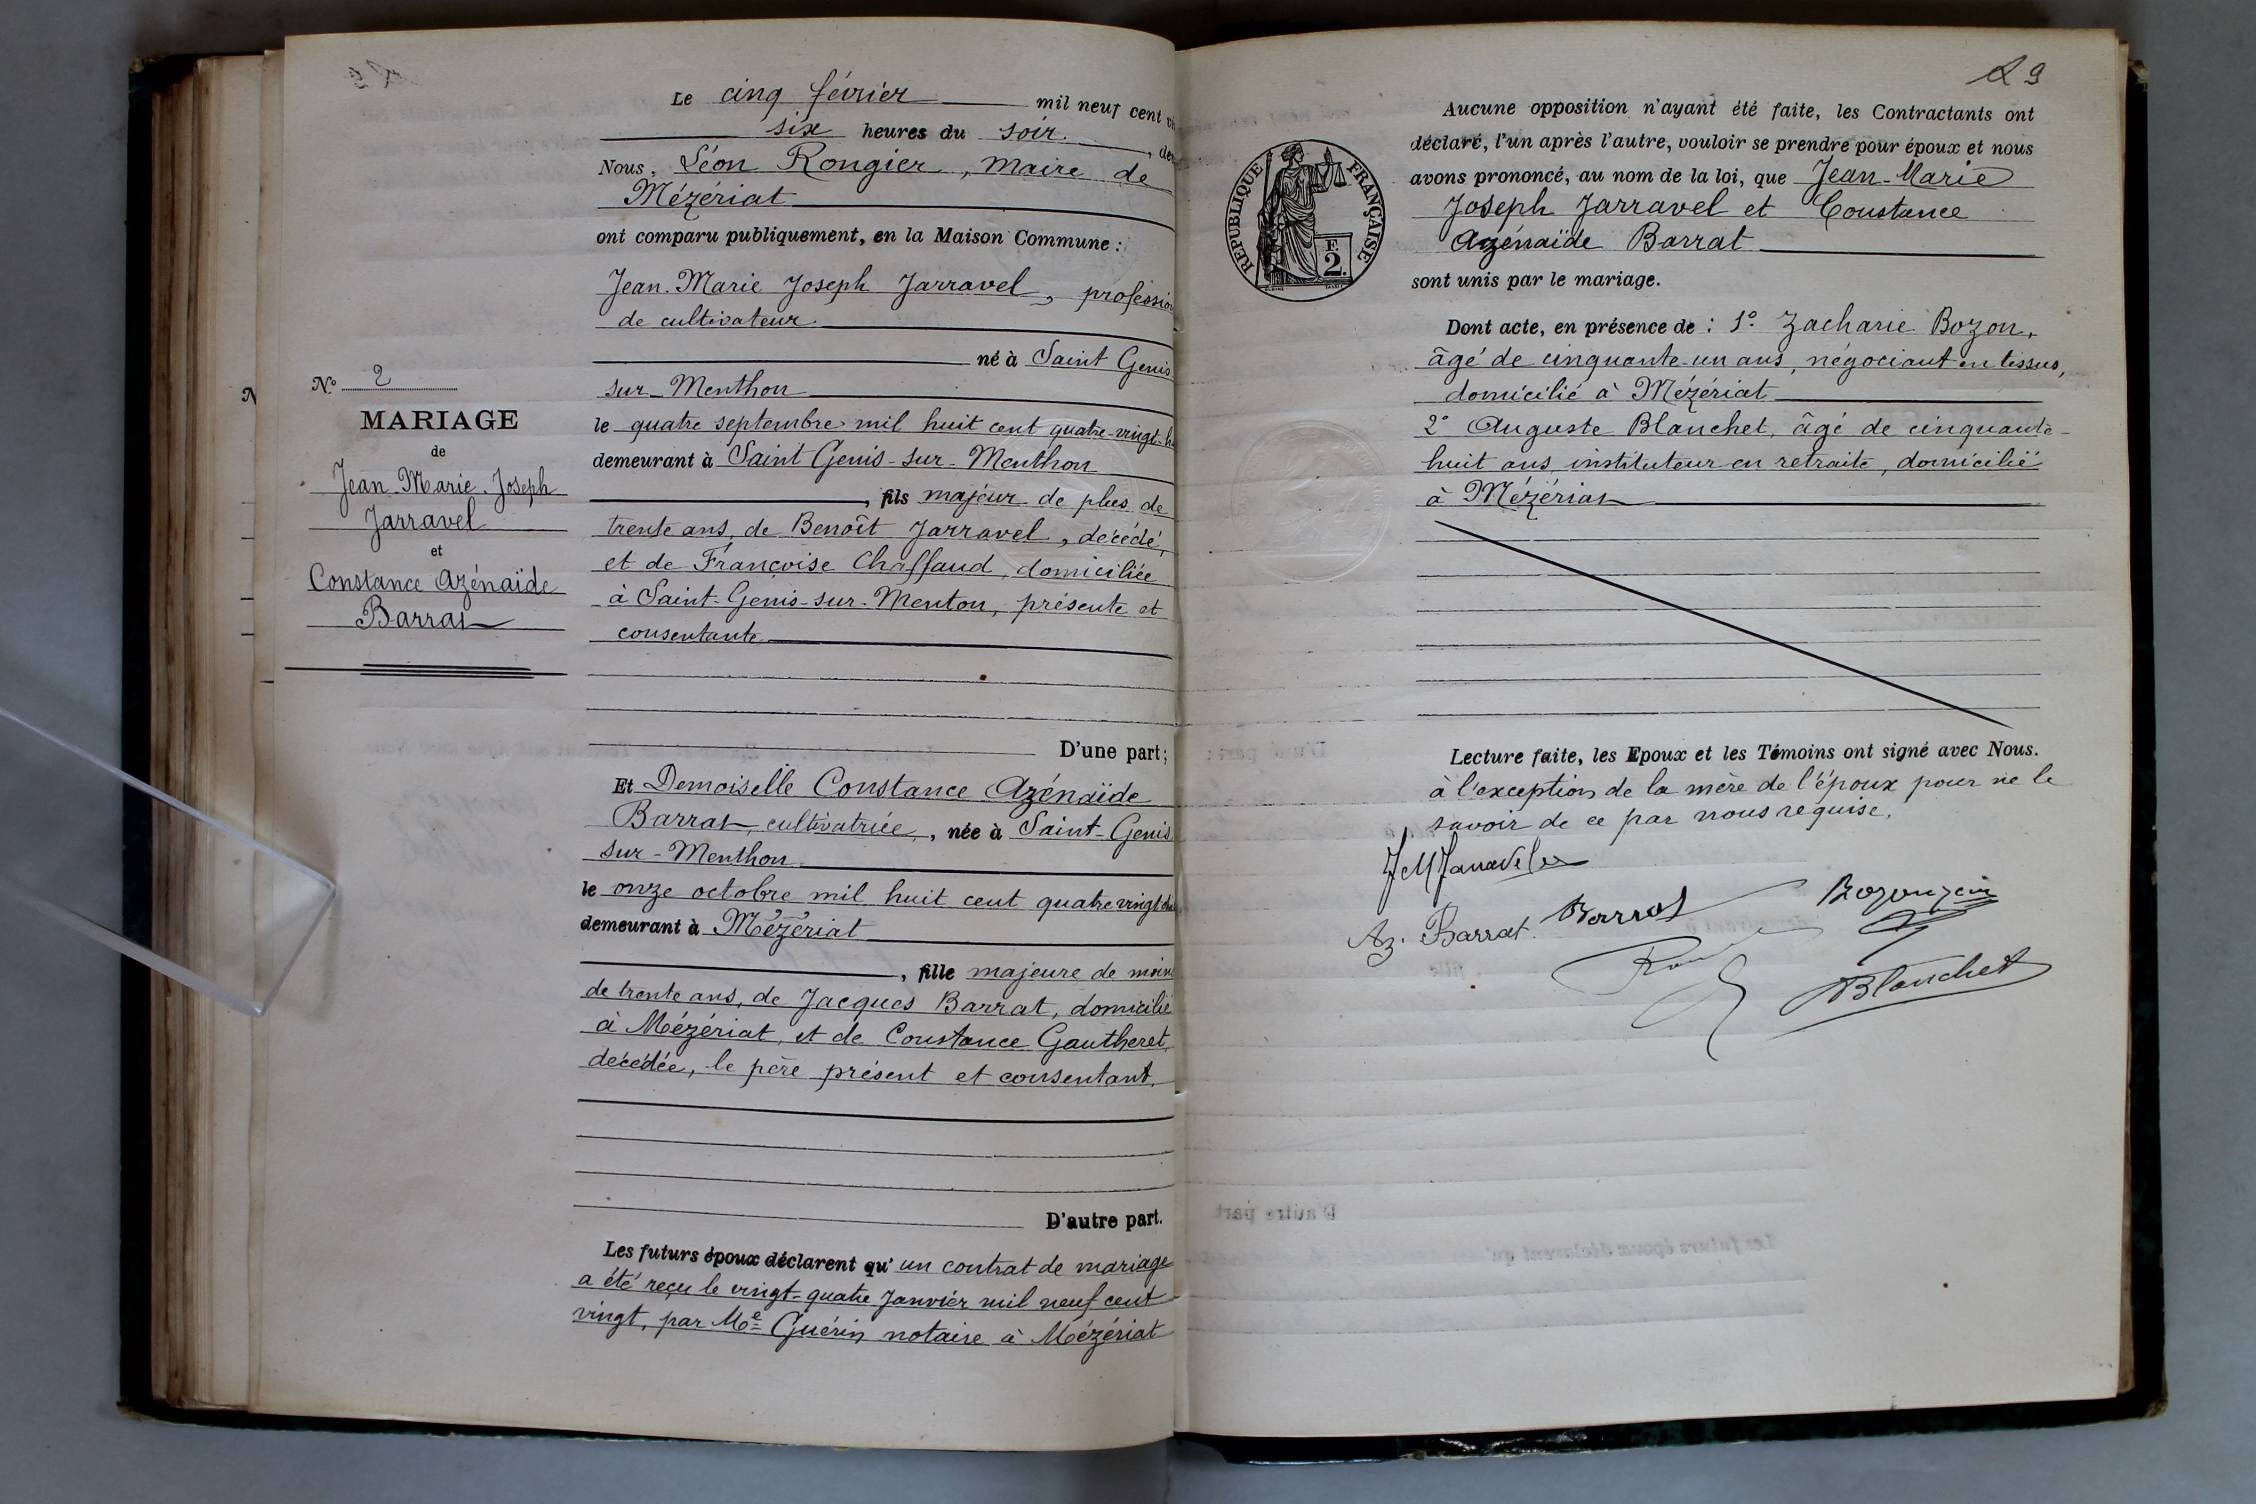 Le cinq février mil neuf cent
six heures du soir,
Nous, Léon Rongier, Maire de
Mézériat
ont comparu publiquement, en la Maison Commune :
Jean-Marie Joseph Jarravel, profession
de cultivateur
né à Saint Genis
sur-Menthon
le quatre septembre mil huit cent quatre-vingt-
demeurant à Saint Genis-sur-Menthon
, fils majeur de plus de
trente ans, de Benoît Jarravel, décédé,
et de Françoise Chaffaud, domiciliée
à Saint-Genis-sur-Menton, présente et
consentante
D'une part;
Et Demoiselle Constance Azénaïde
Barrat, cultivatrice, née à Saint-Genis
sur-Menthon
le onze octobre mil huit cent quatre vingt
demeurant à Mézériat
, fille majeure de moins
de trente ans, de Jacques Barrat, domicilié
à Mézériat, et de Constance Gautheret,
décédée, le père présent et consentant.
D'autre part.
Les futurs époux déclarent qu'un contrat de mariage
a été reçu le vingt-quatre Janvier mil neuf cent
vingt, par Me Guérin notaire à Mézériat
N° 2
MARIAGE
de
Jean-Marie-Joseph
Jarravel
et
Constance Azénaïde
Barrat
N
29
RÉPUBLIQUE FRANÇAISE
F.
2.
Aucune opposition n'ayant été faite, les Contractants ont
déclaré, l'un après l'autre, vouloir se prendre pour époux et nous
avons prononcé, au nom de la loi, que Jean-Marie
Joseph Jarravel et Constance
Azénaïde Barrat
sont unis par le mariage.
Dont acte, en présence de : 1° Zacharie Bozon,
âgé de cinquante-un ans, négociant en tissus,
domicilié à Mézériat
2° Auguste Blanchet, âgé de cinquante-
huit ans, instituteur en retraite, domicilié
à Mézériat
Lecture faite, les Epoux et les Témoins ont signé avec Nous.
à l'exception de la mère de l'époux pour ne le
savoir de ce par nous requise.
JM Jarravel
Az. Barrat Barrat
Blanchet